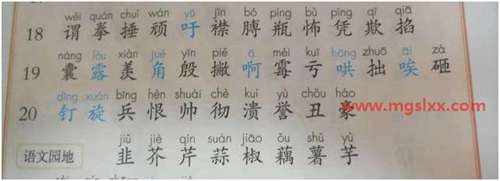 wèi quán chuí wán yù jīn bó píng bù píng qī qiā
18 谓 拳 捶 顽 吁 襟 膊 瓶 怖 凭 欺 掐
náng lòu xiàn jué yīn piě ā méi kuī hōng zhuō āi zá
19 囊 露 羡 角 殷 撇 啊 霉 亏 哄 拙 唉 砸
dìng xuàn bīng hèn shuài chè kuì yù chǒu háo
20 钉 旋 兵 恨 帅 彻 溃 誉 丑 豪
www.mgslxx.com
jiǔ jiè qín suàn jiāo ǒu shǔ yù
语文园地 韭 芥 芹 蒜 椒 藕 薯 芋